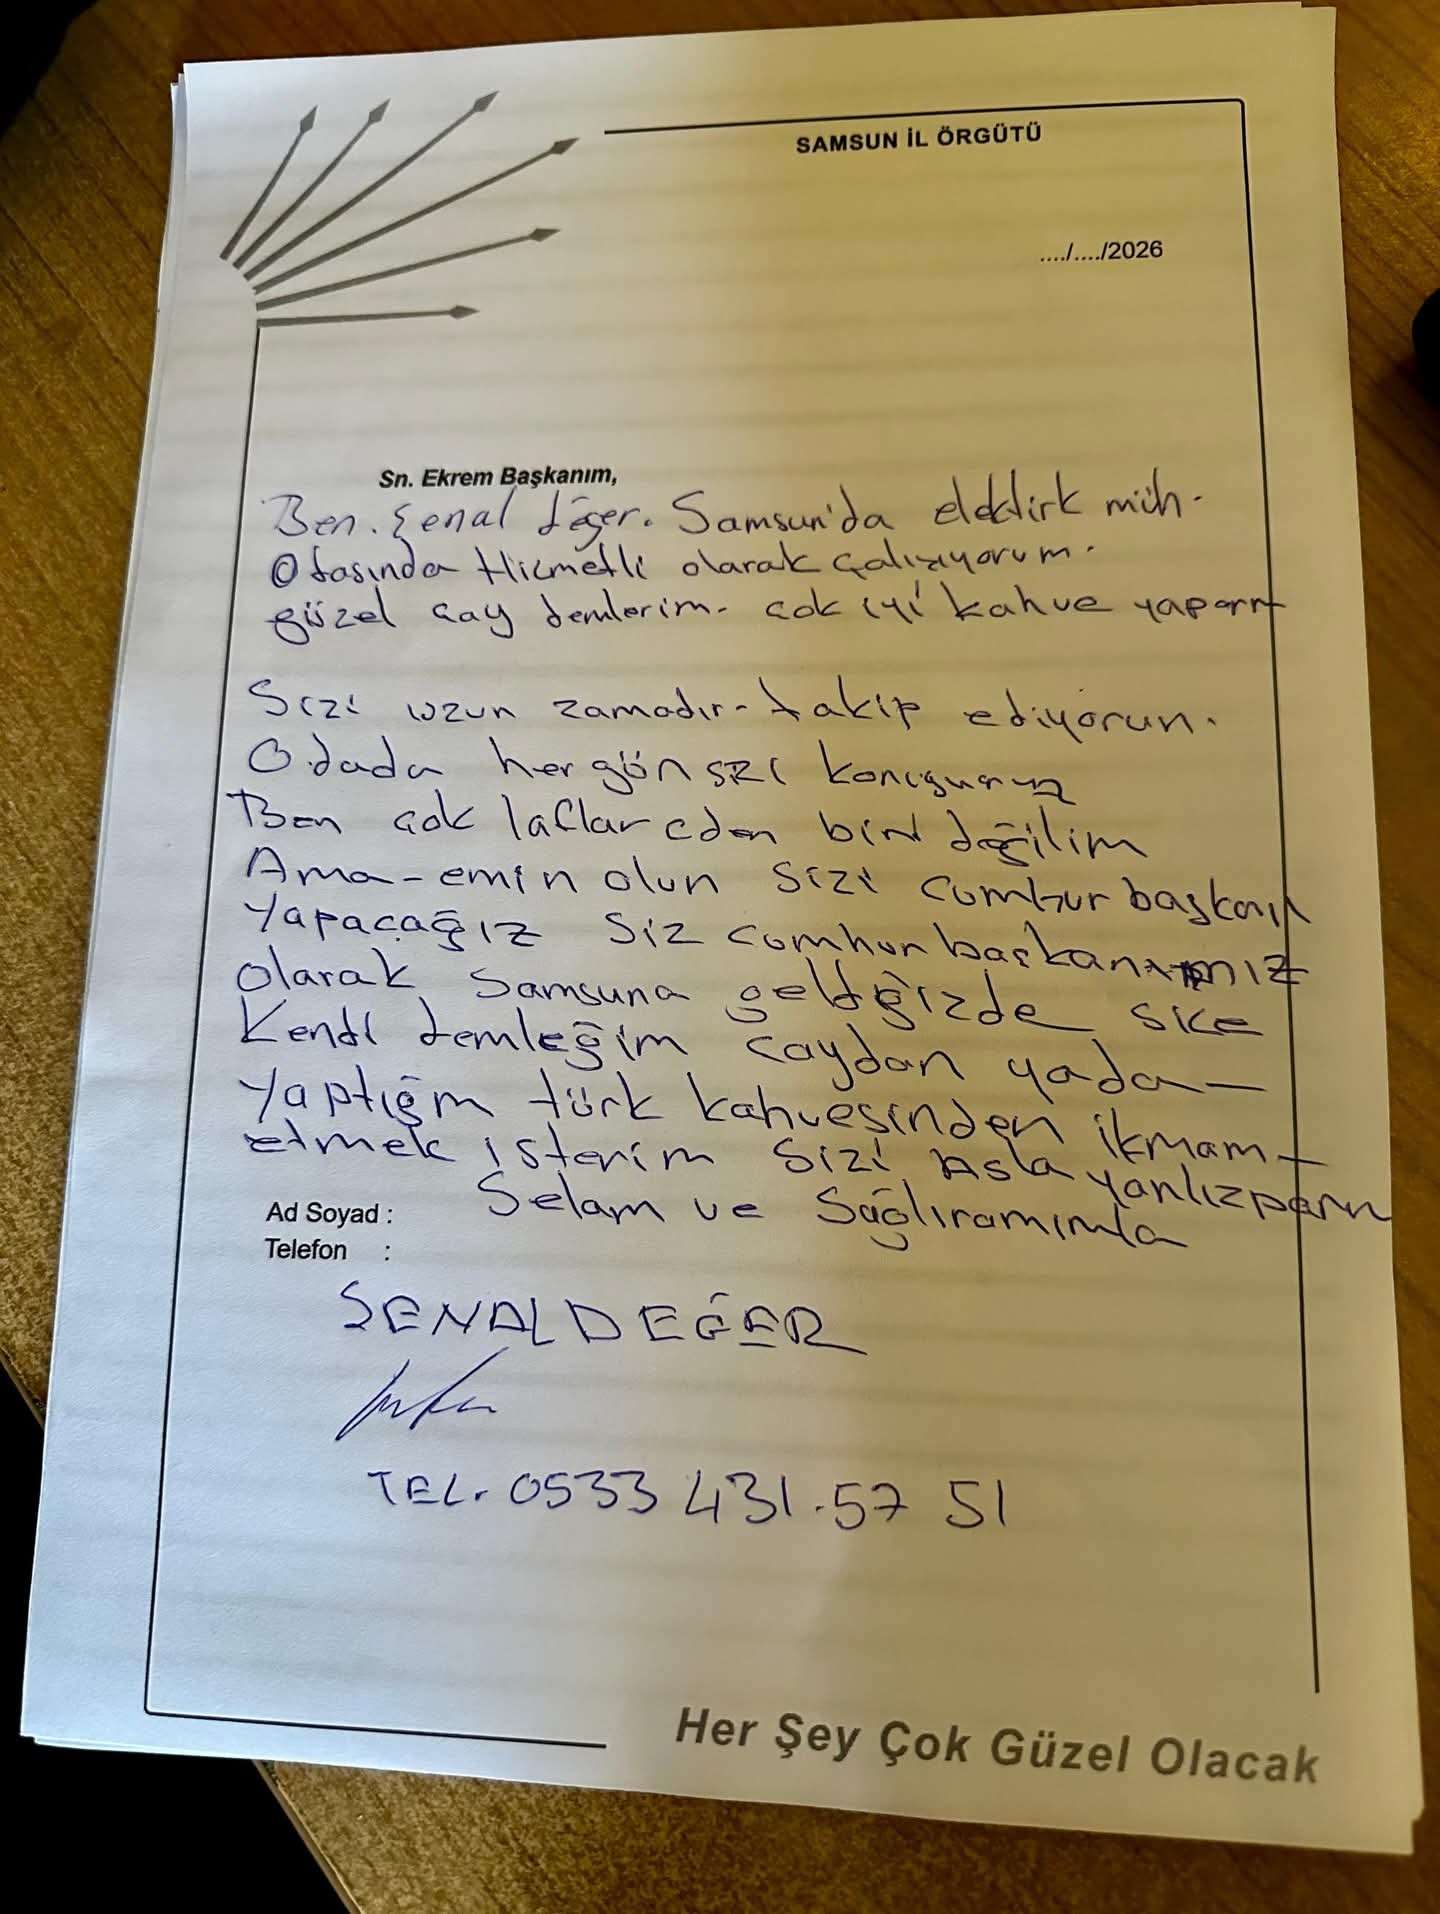 SAMSUN İL ÖRGÜTÜ
..../..../2026
Sn. Ekrem Başkanım,
Ben. Şenal değer. Samsun'da elektirk müh.
Odasında Hizmetli olarak çalışıyorum.
güzel çay demlerim. çok iyi kahve yaparım
Sizi uzun zamadır takip ediyorun.
Odada hergön sizi konuşuruz
Ben çok laflar eden biri değilim
Ama emin olun sizi cumhurbaşkanı
Yapacağız Siz cumhurbaşkanımız
olarak Samsuna geldğizde size
Kendi demleğim çaydan yada
Yaptığm türk kahvesinden ikmam
etmek isterim Sizi asla
Selam ve Sağlıramımla
Ad Soyad :
Telefon :
SENAL DEĞER
TEL. 0533 431.57 51
Her Şey Çok Güzel Olacak